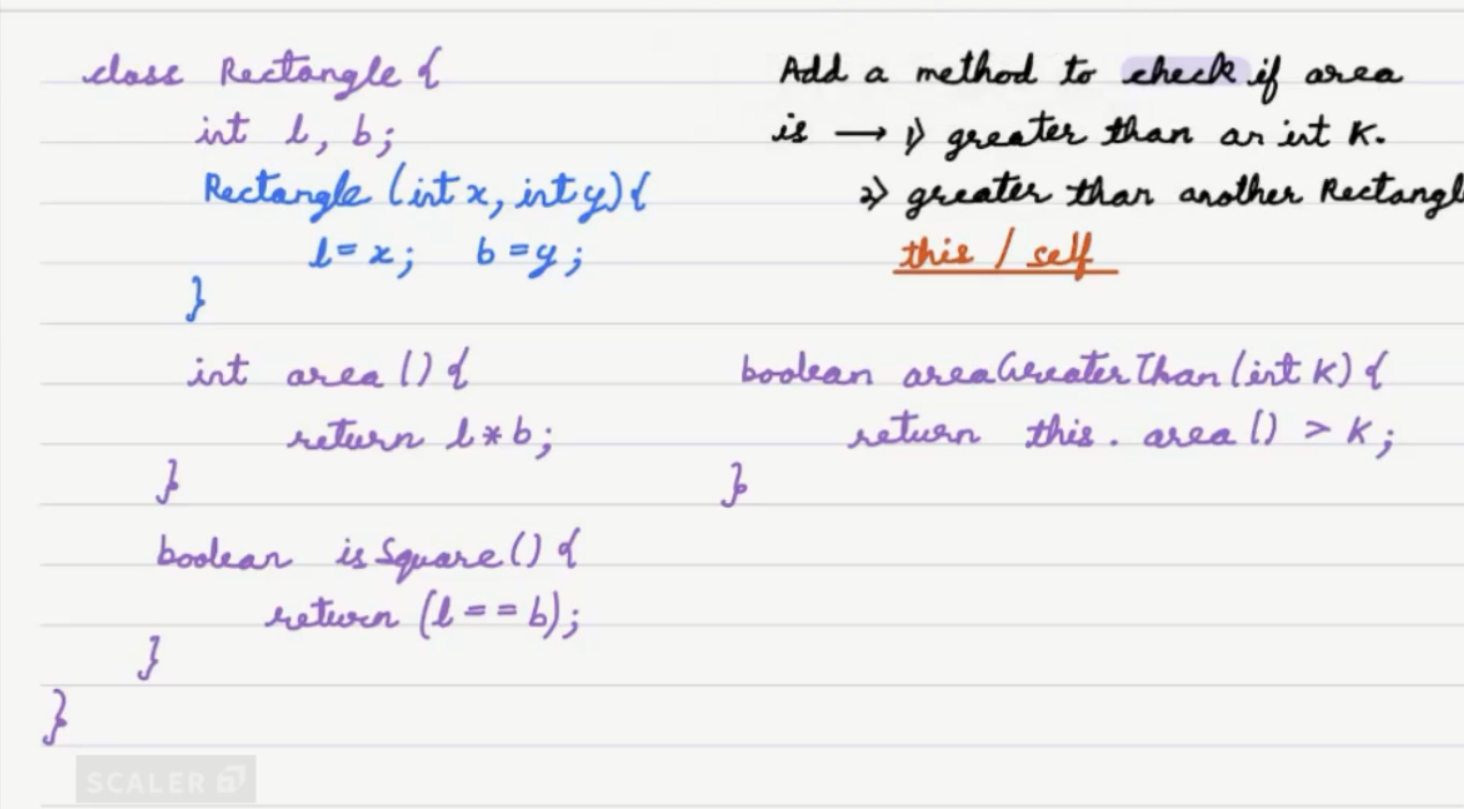 class Rectangle {
int l, b;
Rectangle (int x, int y) {
l = x; b = y;
}
int area () {
return l * b;
}
boolean isSquare () {
return (l == b);
}
}
Add a method to check if area
is → 1) greater than an int K.
2) greater than another Rectangl
this / self
boolean areaGreaterThan (int K) {
return this . area () > K;
}
SCALER